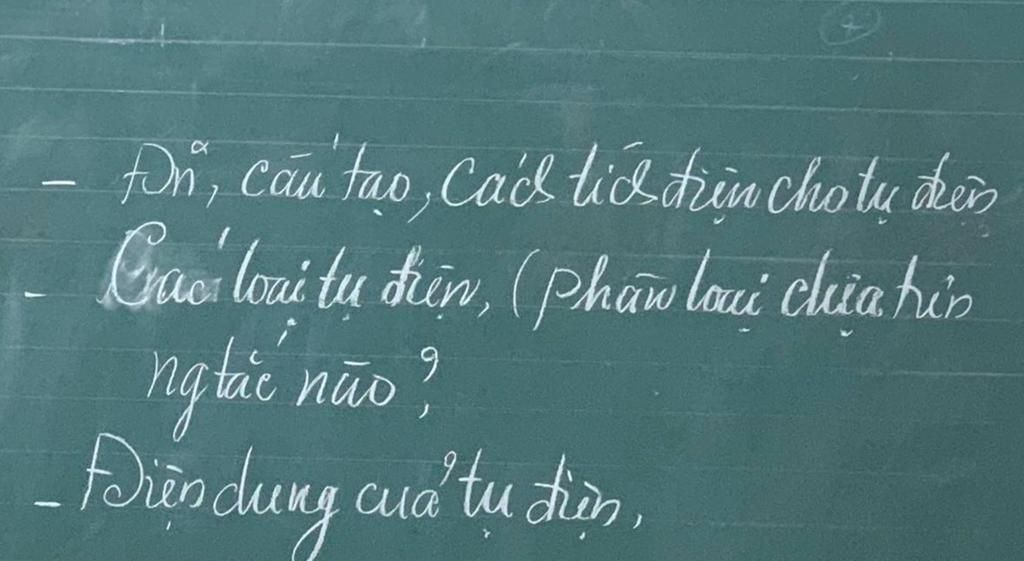 - Đn̈, cấu tạo, Cách tích điện cho tụ điện
- Các loại tụ điện, (phân loại dựa trên
ng tắc nào?
- Điện dung của tụ điện,